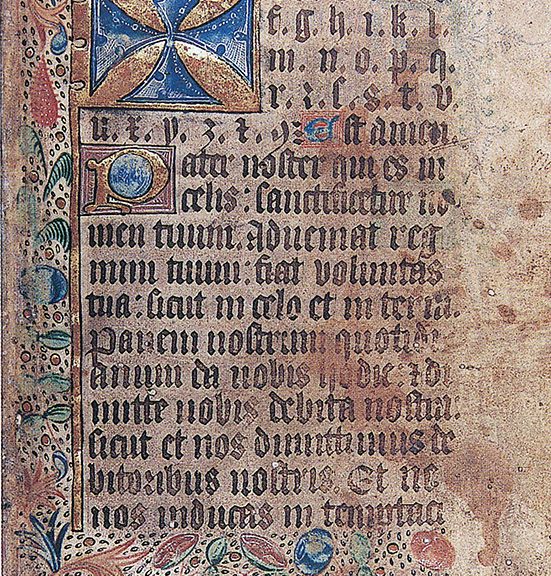 f. g. h. i. k. l.
m. n. o. p. q.
r. ꝛ. ſ. s. t. v.
u. x. y. z. ⁊. ꝯ: Est amen
Pater noster qui es in
celis: sanctificetur no
men tuum. Adueniat reg
num tuum: fiat voluntas
tua: sicut in celo et in terra.
Panem nostrum quotidi
anum da nobis hodie: ⁊ di
mitte nobis debita nostra.
sicut et nos dimittimus de
bitoribus nostris. Et ne
nos inducas in temptaci